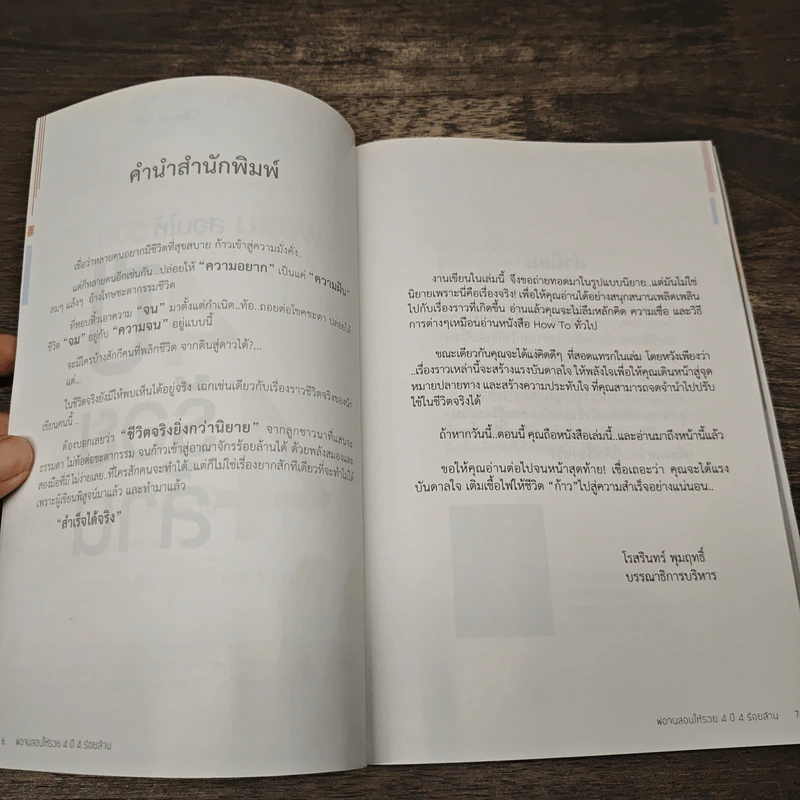 คำนำสำนักพิมพ์
เชื่อว่าหลายคนอยากมีชีวิตที่สุขสบาย ก้าวเข้าสู่ความมั่งคั่ง..
แต่ก็หลายคนอีกเช่นกัน..ปล่อยให้ “ความอยาก” เป็นแค่ “ความฝัน”
ลมๆ แล้งๆ อ้างโทษชะตากรรมชีวิต
ที่หอบหิ้วเอาความ “จน” มาตั้งแต่กำเนิด..ท้อ..ถอยต่อโชคชะตา ปล่อยให้
ชีวิต “จม” อยู่กับ “ความจน” อยู่แบบนี้
จะมีใครบ้างสักกี่คนที่พลิกชีวิต จากดินสู่ดาวได้?...
แต่...
ในชีวิตจริงยังมีให้พบเห็นได้อยู่จริง เฉกเช่นเดียวกับเรื่องราวชีวิตจริงของนัก
เขียนคนนี้ ..
ต้องบอกเลยว่า “ชีวิตจริงยิ่งกว่านิยาย” จากลูกชาวนาที่แสนจะ
ธรรมดา ไม่ท้อต่อชะตากรรม จนก้าวเข้าสู่อาณาจักรร้อยล้านได้ ด้วยพลังสมองและ
สองมือที่มี ไม่ง่ายเลย..ที่ใครสักคนจะทำได้..แต่ก็ไม่ใช่เรื่องยากสักทีเดียวที่จะทำไม่ได้
เพราะผู้เขียนพิสูจน์มาแล้ว และทำมาแล้ว
“สำเร็จได้จริง”
6 พ่อานสอนให้รวย 4 ปี 4 ร้อยล้าน
งานเขียนในเล่มนี้ จึงขอถ่ายทอดมาในรูปแบบนิยาย..แต่มันไม่ใช่
นิยายเพราะนี่คือเรื่องจริง! เพื่อให้คุณอ่านได้อย่างสนุกสนานเพลิดเพลิน
ไปกับเรื่องราวที่เกิดขึ้น อ่านแล้วคุณจะไม่ลืมหลักคิด ความเชื่อ และวิธี
การต่างๆเหมือนอ่านหนังสือ How To ทั่วไป
ขณะเดียวกันคุณจะได้แง่คิดดีๆ ที่สอดแทรกในเล่ม โดยหวังเพียงว่า
..เรื่องราวเหล่านี้จะสร้างแรงบันดาลใจ ให้พลังใจเพื่อให้คุณเดินหน้าสู่จุด
หมายปลายทาง และสร้างความประทับใจ ที่คุณสามารถจดจำนำไปปรับ
ใช้ในชีวิตจริงได้
ถ้าหากวันนี้..ตอนนี้ คุณถือหนังสือเล่มนี้..และอ่านมาถึงหน้านี้แล้ว
ขอให้คุณอ่านต่อไปจนหน้าสุดท้าย! เชื่อเถอะว่า คุณจะได้แรง
บันดาลใจ เติมเชื้อไฟให้ชีวิต “ก้าว”ไปสู่ความสำเร็จอย่างแน่นอน..
โรสรินทร์ พุมฤทธิ์
บรรณาธิการบริหาร
พ่อานสอนให้รวย 4 ปี 4 ร้อยล้าน 7